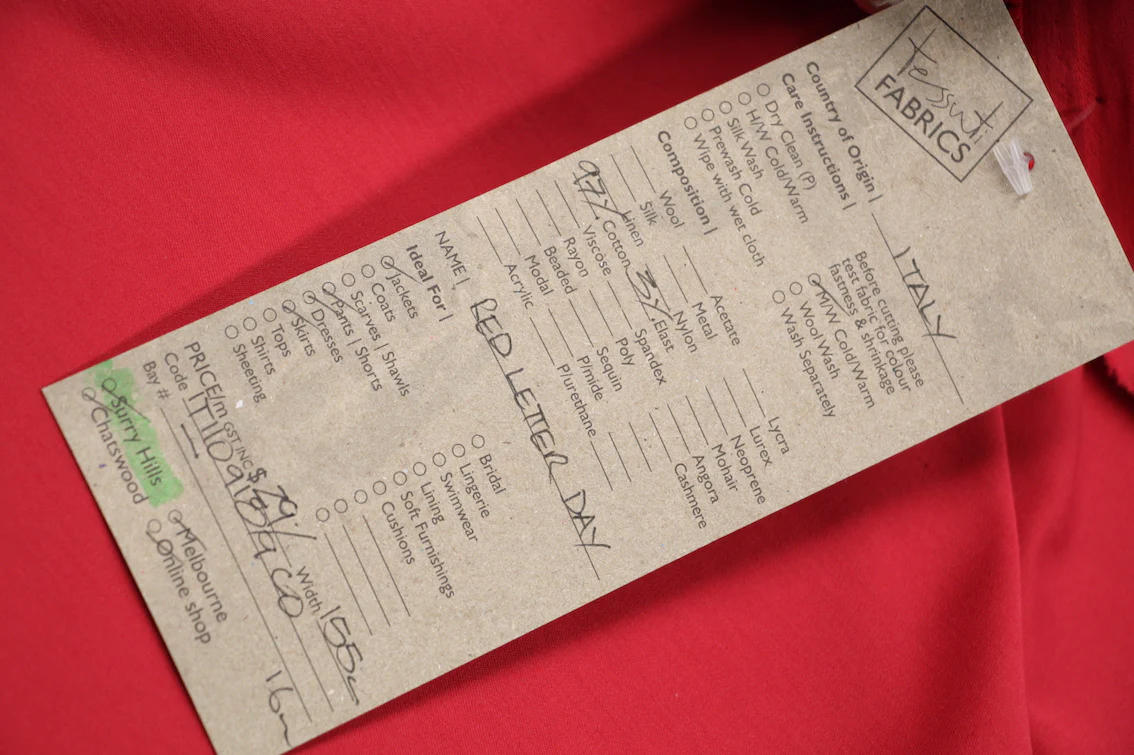 tessuti
FABRICS
Country of Origin | ITALY
Care Instructions |
Dry Clean (P)
H/W Cold/Warm
Silk Wash
Prewash Cold
Wipe with wet cloth
Before cutting please
test fabric for colour
fastness & shrinkage
M/W Cold/Warm
Wool Wash
Wash Separately
Composition |
Wool
Silk
Linen
97% Cotton
Viscose
Rayon
Beaded
Modal
Acrylic
Acetate
Metal
Nylon
3% Elast
Spandex
Poly
Sequin
P/mide
P/urethane
Lycra
Lurex
Neoprene
Mohair
Angora
Cashmere
NAME | RED LETTER DAY
Ideal For |
Jackets
Coats
Scarves | Shawls
Pants | Shorts
Dresses
Skirts
Tops
Shirts
Sheeting
Bridal
Lingerie
Swimwear
Lining
Soft Furnishings
Cushions
PRICE/m GST INC $79/ Width 155c
Code
Bay #
Surry Hills
Chatswood
Melbourne
Online shop
16m